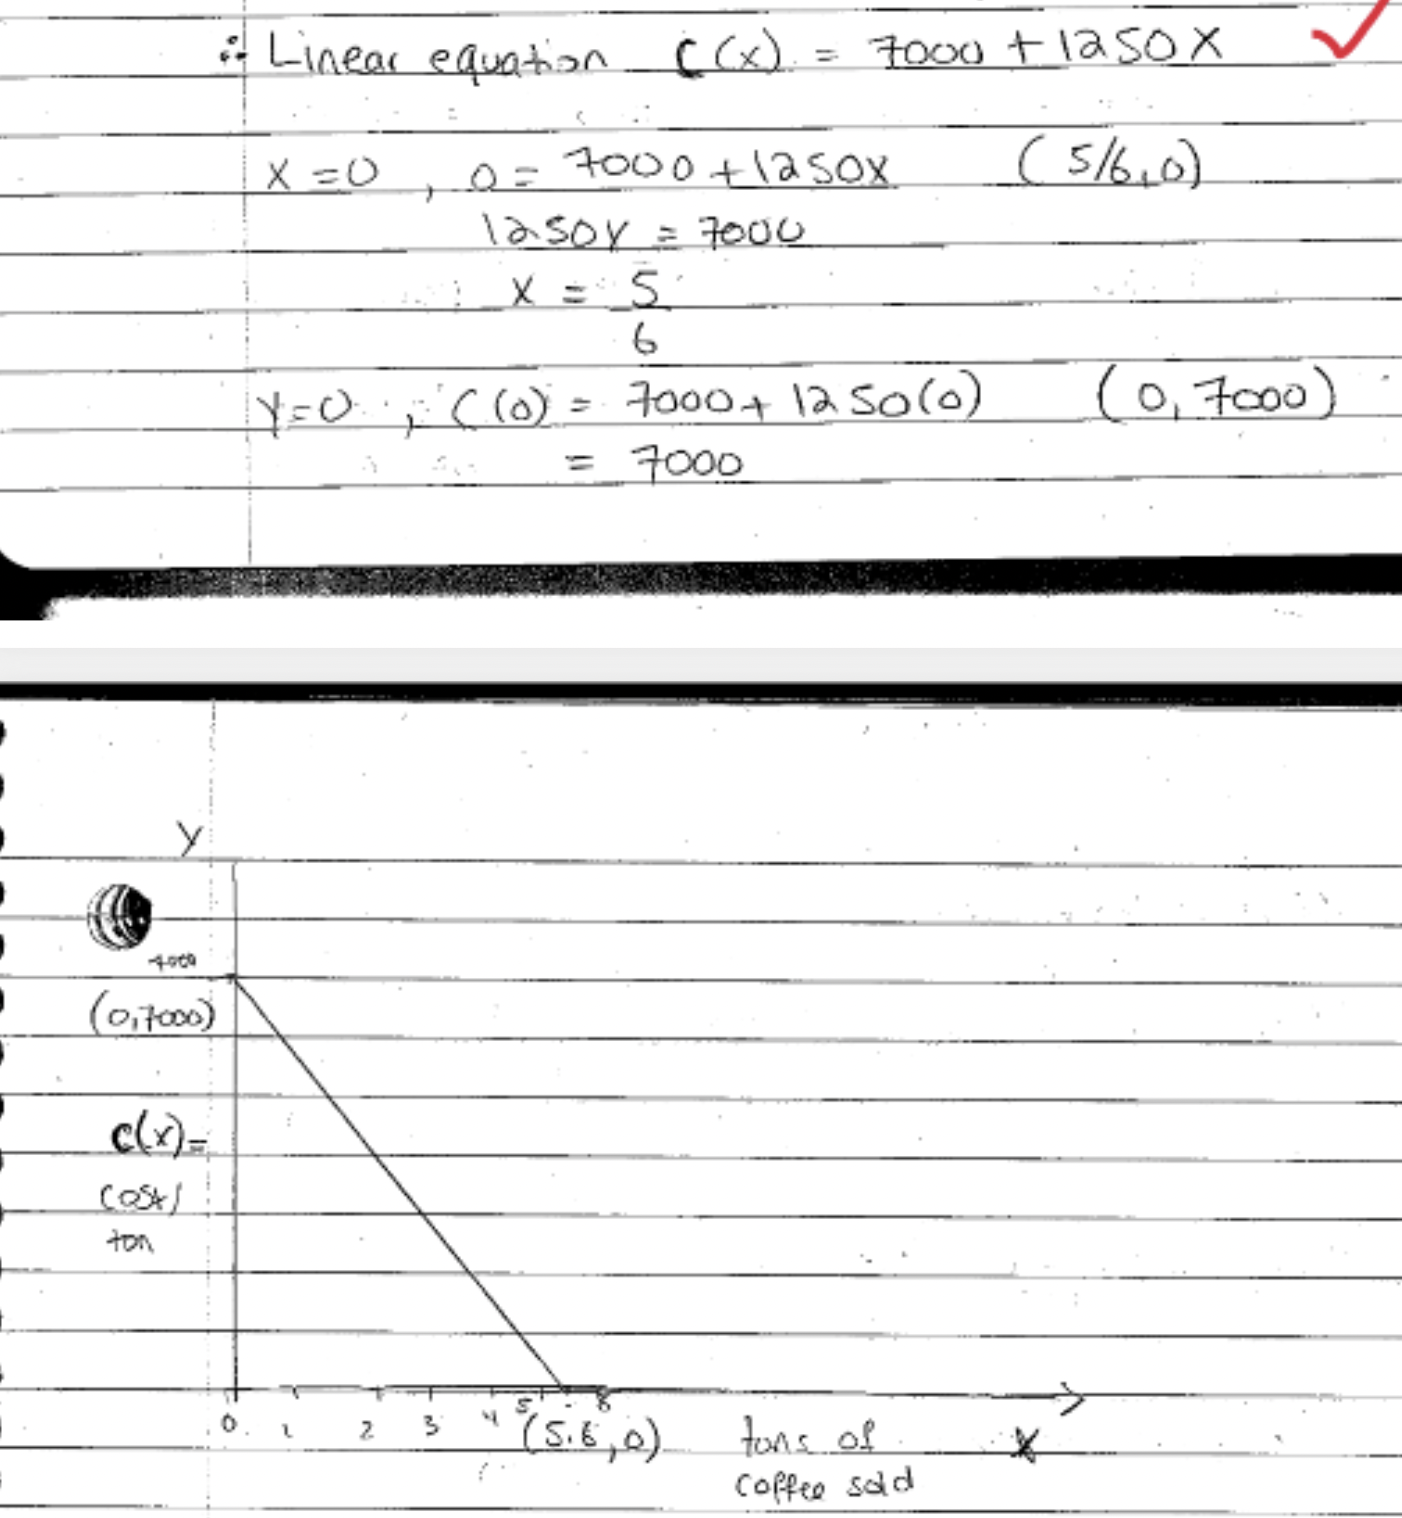 ∴ Linear equation C(x) = 7000 + 1250X
X = 0 , 0 = 7000 + 1250X (5/6,0)
1250X = 7000
X = 5
6
Y=0 , C(0) = 7000 + 1250(0) (0, 7000)
= 7000
Y
(0,7000)
C(x)=
cost/
ton
0 1 2 3 4 5
(5.6,0) tons of X
coffee sold